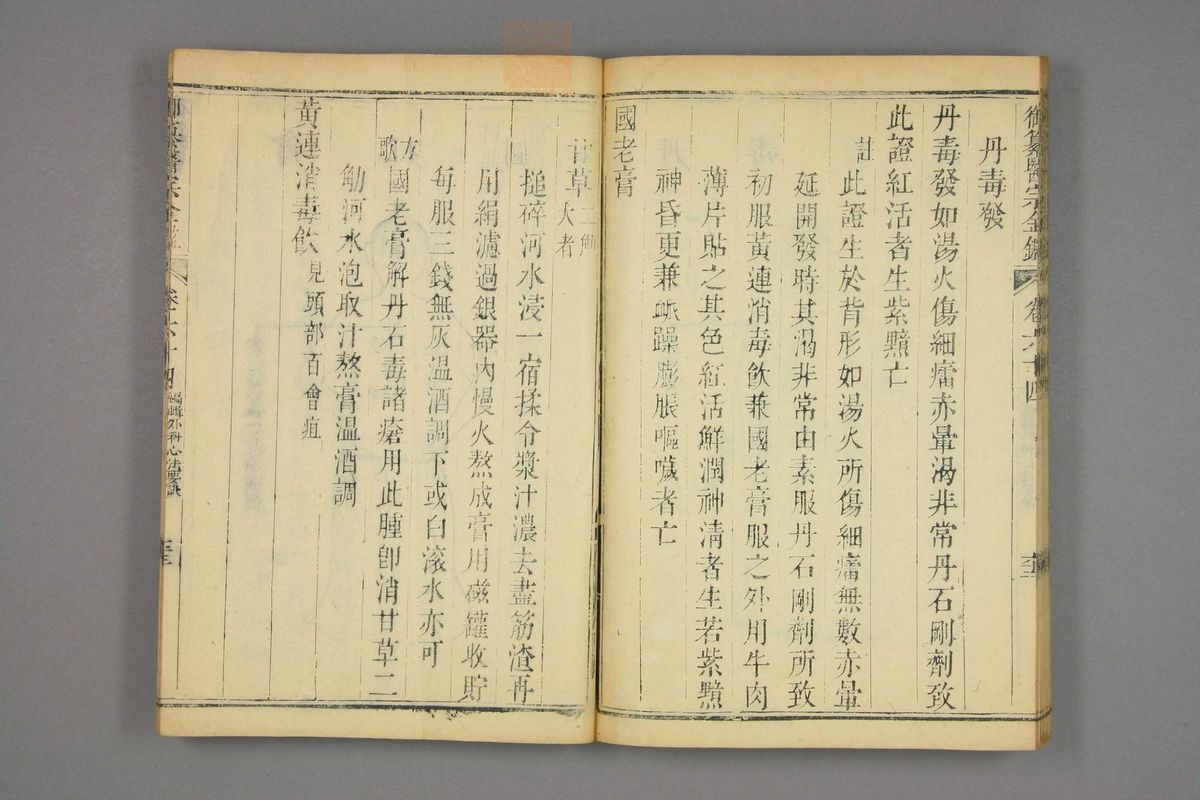 御纂醫宗金鑑 卷六十四
丹毒發
丹毒發如湯火傷細㿔赤暈渴非常丹石剛劑致
此證紅活者生紫黯亡
註 此證生於背形如湯火所傷細㿔無數赤暈
延開發時其渴非常由素服丹石剛劑所致
初服黃連消毒飲兼國老膏服之外用牛肉
薄片貼之其色紅活鮮潤神清者生若紫黯
神昏更兼㖞躁膨脹嘔噦者亡
國老膏
甘草二觔大者
搥碎河水浸一宿揉令漿汁濃去盡筋渣再
用絹濾過銀器內慢火熬成膏用磁罐收貯
每服三錢無灰溫酒調下或白滾水亦可
方歌 國老膏解丹石毒諸瘡用此腫卽消甘草二
觔河水泡取汁熬膏溫酒調
黃連消毒飲見頭部百會疽
編輯外科心法要訣